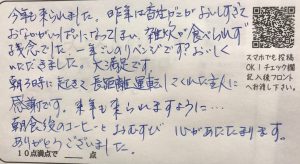 今年も来られました。昨年は香住ガニがおいしすぎて
おなかがいっぱいになってしまい、雑炊が食べられず
残念でした。一年ごしのリベンジです?おいしく
いただきました。大満足です。
朝3時に起きて長距離運転してくれた主人に
感謝です。来年も来られますように…
朝食後のコーヒーとおむすび 心があたたまります。
ありがとうございました。
10点満点で 点
スマホでも投稿
OK!チェック欄
記入後フロント
へお渡し下さい。